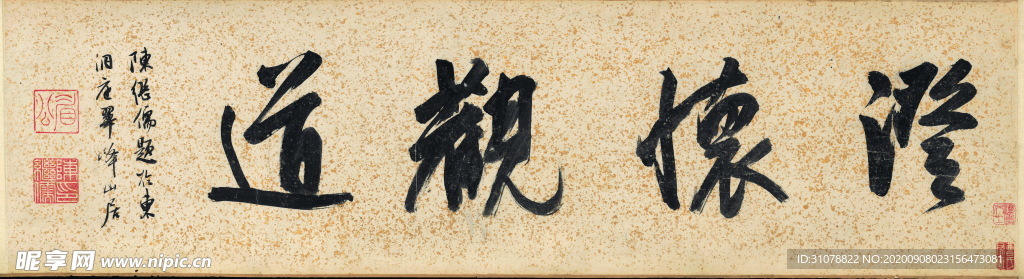 澄懷觀道
陳繼儒題於東
洞庭翠峰山居
眉公
陳印繼儒
昵享网 www.nipic.cn
ID:31078822 NO:20200908023156473081